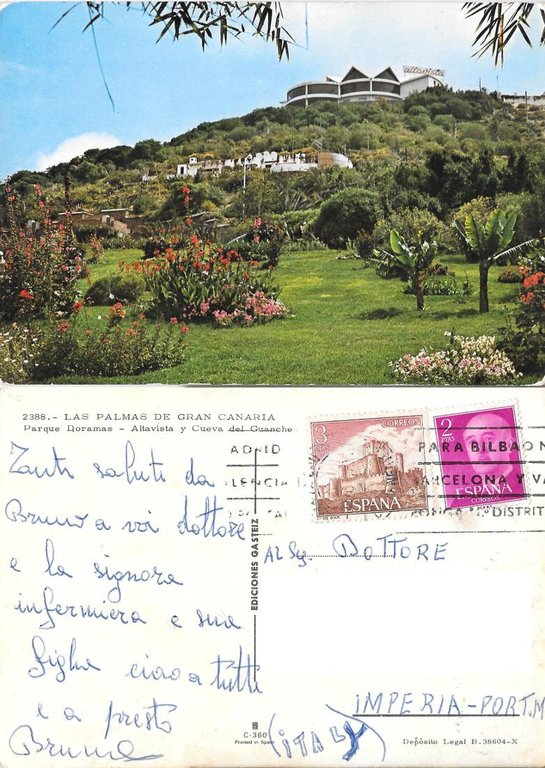 altavista
2388.- LAS PALMAS DE GRAN CANARIA
Parque Doramas - Altavista y Cueva del Guanche
Tanti saluti da
Bruno a voi dottore
e la signora
infermiera e sua
figha ciao a tutti
e a presto
Bruno
EDICIONES GASTEIZ
C-360
Printed in Spain
3 PTAS CORREOS
ESPAÑA
2
PTAS
ESPAÑA
CORREOS
PARA BILBAO
BARCELONA Y VA
DISTRIT
AL Sg. DOTTORE
IMPERIA-PORT.M
(ITALY)
Depósito Legal B.38604-X